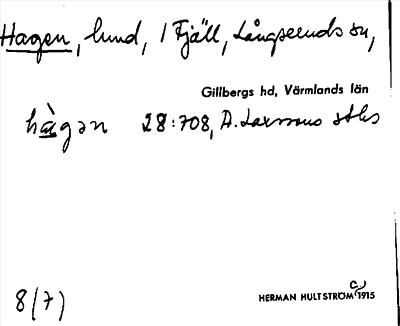 Hagen, lund, 1 Fjäll, Långserud sn,
Gillbergs hd, Värmlands län
hàgen 28:708, A. Larssons
8 (7)
HERMAN HULTSTRÖM 1915